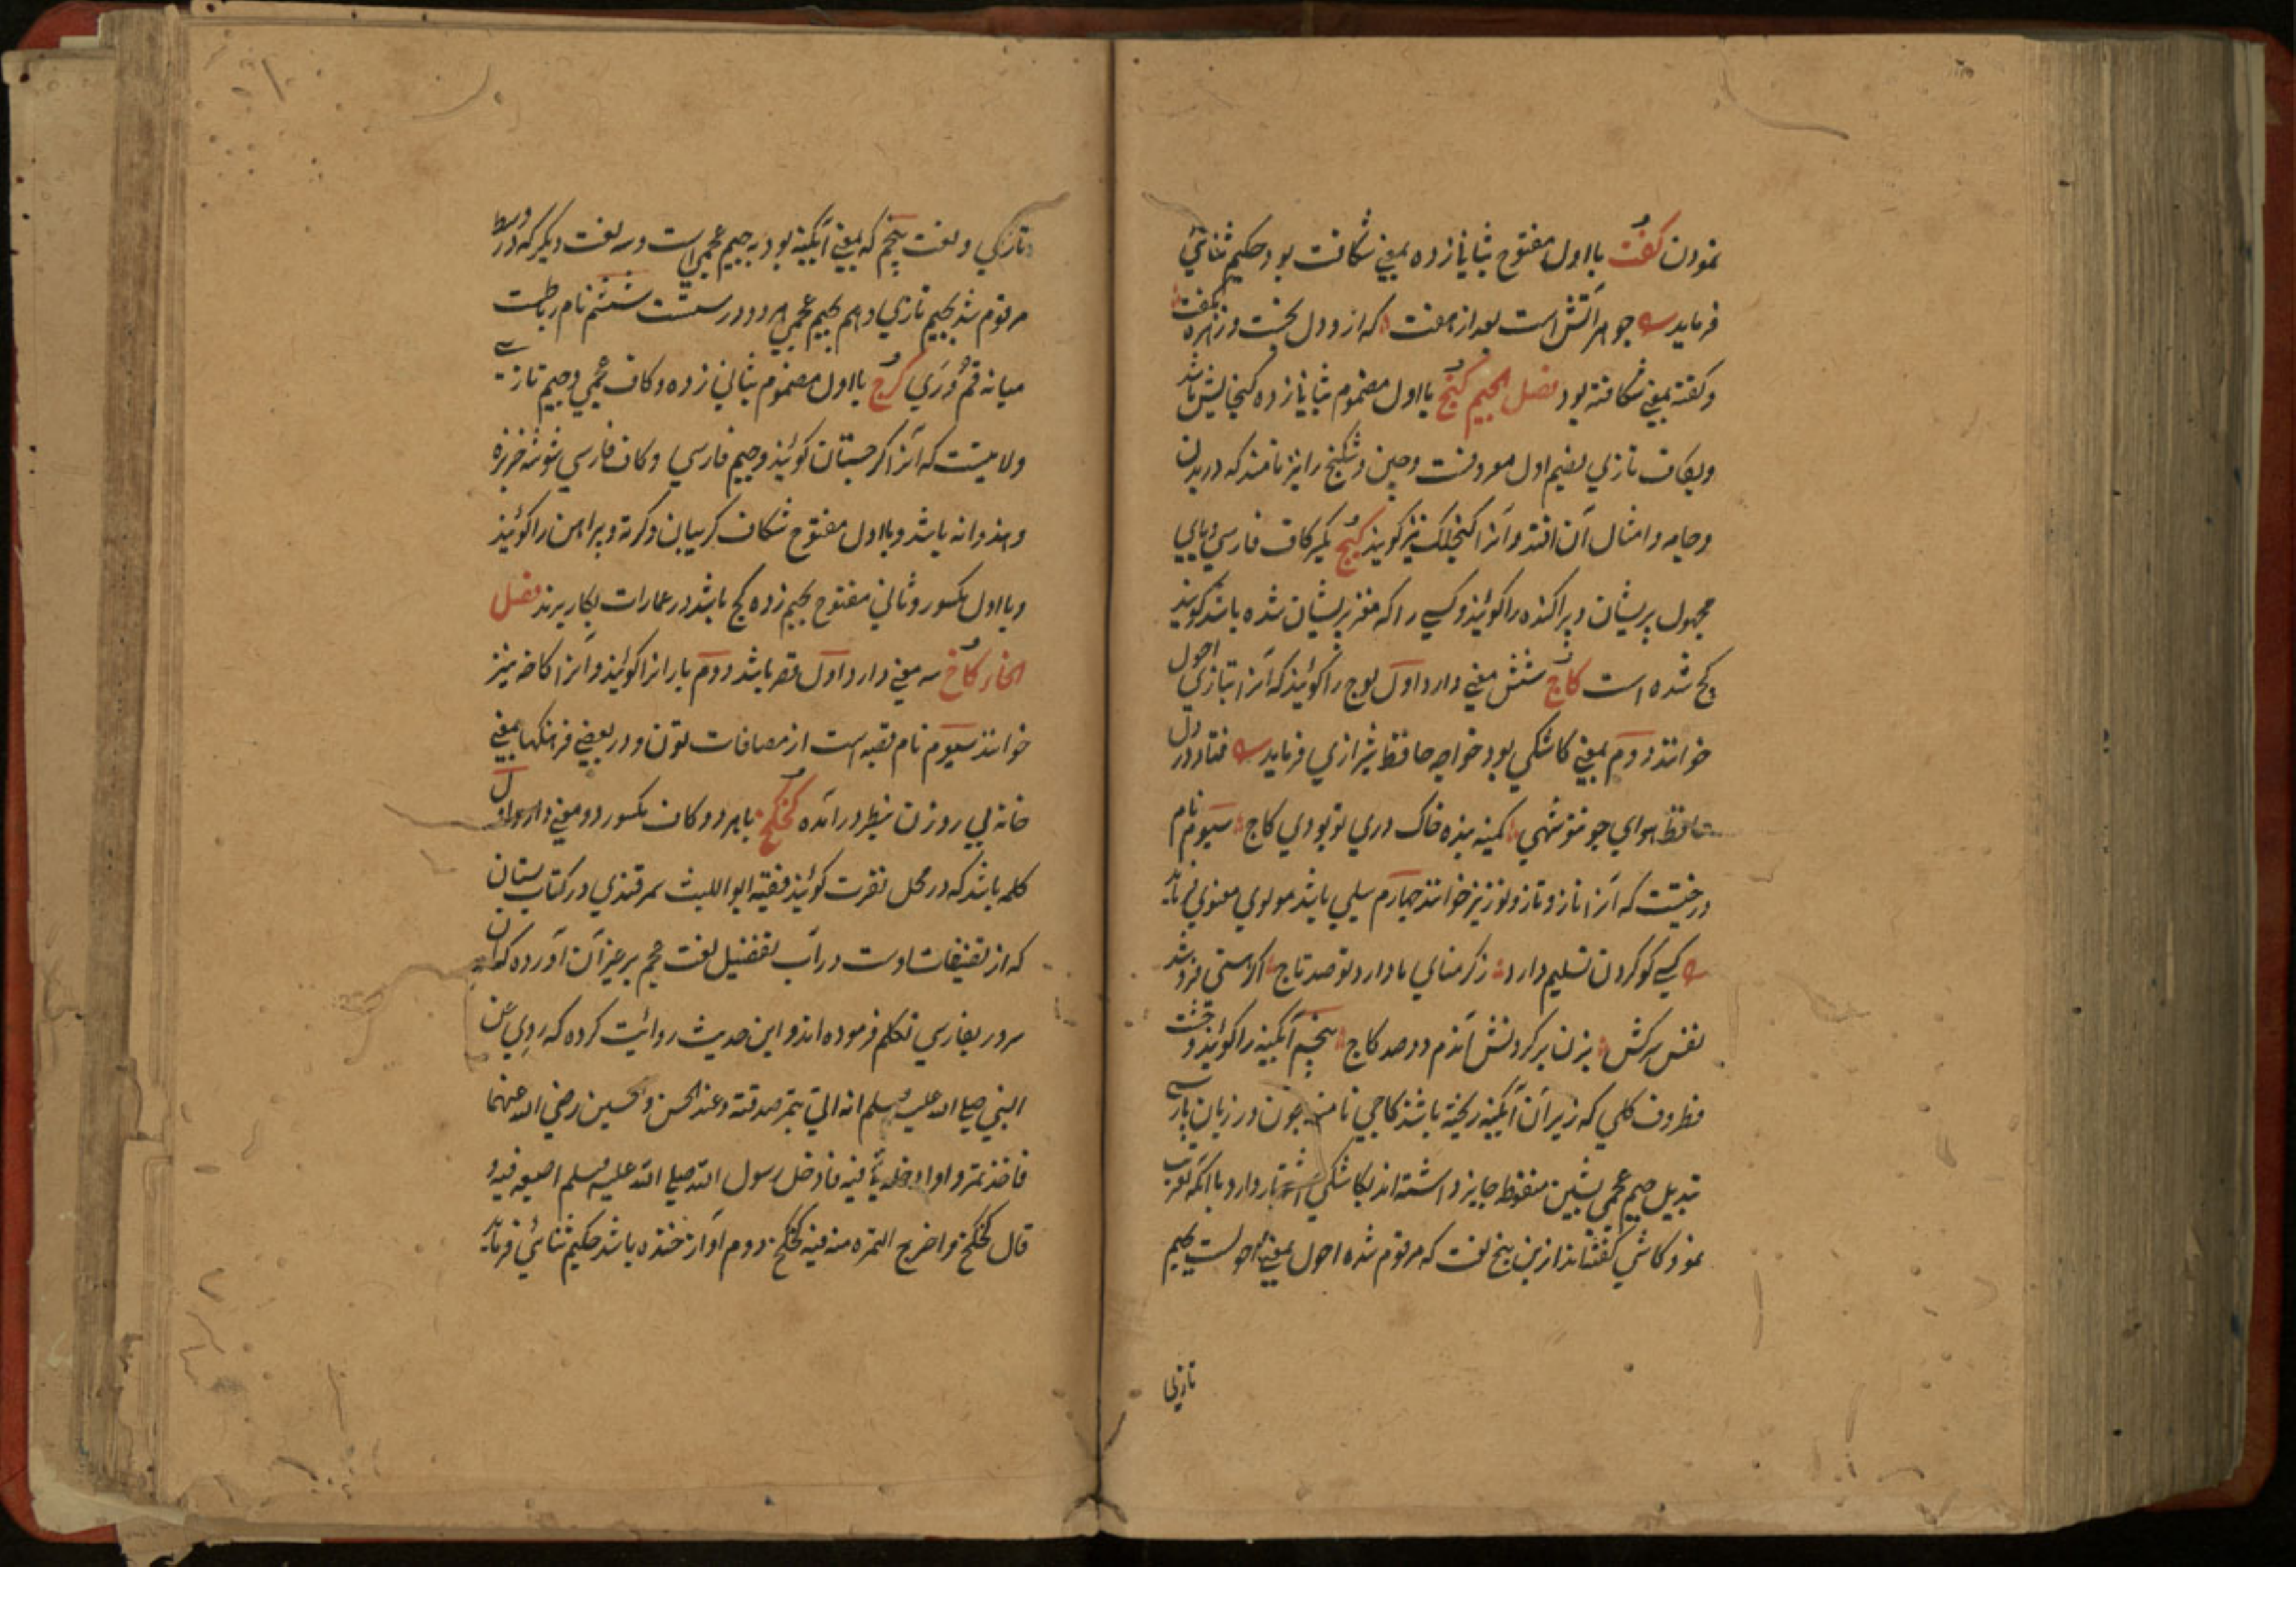 نمودن کفت بااول مفتوح بثانی زده بمعنی شکافت بود حکیم ثنائی
فرماید جوهر آتش است بعد از هفت که ازو دل بخست و زهره بکفت
و کفته بمعنی شکافته بود فصل الجیم کنج بااول مضموم بثانی زده کنجایش باشد
و بکاف تازی بضم اول معروفست و چین و شکنج را نیز نامند که در بدن
و جامه و امثال آن افتد و آنرا کنجلک نیز کویند کیج بکسر کاف فارسی و یای
مجهول پریشان و پراکنده را کویند و کسی را که مغز پریشان شده باشد کویند
کیج شده است کاج شش معنی دارد اول لوج را کویند که آنرا بتازی احول
خوانند دوم بمعنی کاشکی بود خواجه حافظ شیرازی فرماید فتاد در دل
حافظ هوای چو تو شهی کمینه بنده خاک دری تو بودی کاج سیوم نام
درختیست که آنرا ناز و تاز و نوز نیز خوانند چهارم سیلی باشد مولوی معنوی فرماید
کسی کو کردن تسلیم دارد ز کرمنای ما دارد تو صد تاج اکر سستی فروشد
نفس سرکش بزن بر کردنش آندم دو صد کاج پنجم آبکینه را کویند و خشت
و ظروف کلی که زیر آن آبکینه ریخته باشند کاجی نامند چون در زبان پارسی
تبدیل جیم عجمی بشین منقوطه جایز داشته اند بکاشکی اشتهار دارد با آنکه تعریب
نمود کاشی کفته‌اند ازین پنج لغت که مرقوم شده احول بمعنی احولست بجیم
تازی
تازی و لغت پنجم که بمعنی آبکینه بود به جیم عجمی است و سه لغت دیکر که در وسط
مرقوم شد بجیم تازی و هم بجیم عجمی هر دو درستست ششم نام رباطیست
میانه قم و ری کرج بااول مضموم بثانی زده و کاف عجمی و جیم تازی
ولایتیست که آنرا کرجستان کویند و جیم فارسی و کاف فارسی شوشه خربزه
و هندوانه باشد و بااول مفتوح شکاف کریبان و کرته و پیراهن را کویند
و بااول مکسور و ثانی مفتوح بجیم زده کچ باشد در عمارات بکار برند فصل
الخاء کاخ سه معنی دارد اول قصر باشد دوم باران را کویند و آنرا کاخه نیز
خوانند سیوم نام قصبه است از مضافات تون و در بعضی فرهنکها بمعنی
خانه بی روزن بنظر در آمده کخکخ بهر دو کاف مکسور دو معنی دارد اول
کلمه باشد که در محل نفرت کویند فقیه ابو اللیث سمرقندی در کتاب بستان
که از تصنیفات اوست در باب تفضیل لغت عجم بر غیر آن آورده که آن
سرور بفارسی تکلم فرموده اند و این حدیث روایت کرده که روی عن
النبی صلی الله علیه وسلم انه اتی بتمر صدقة و عنده الحسن و الحسین رضی الله عنهما
فاخذ تمرة و ادخلها فی فیه فادخل رسول الله صلی الله علیه وسلم اصبعه فیه و
قال کخکخ و اخرج التمره من فیه کخکخ دوم آواز خنده باشد حکیم ثنائی فرماید